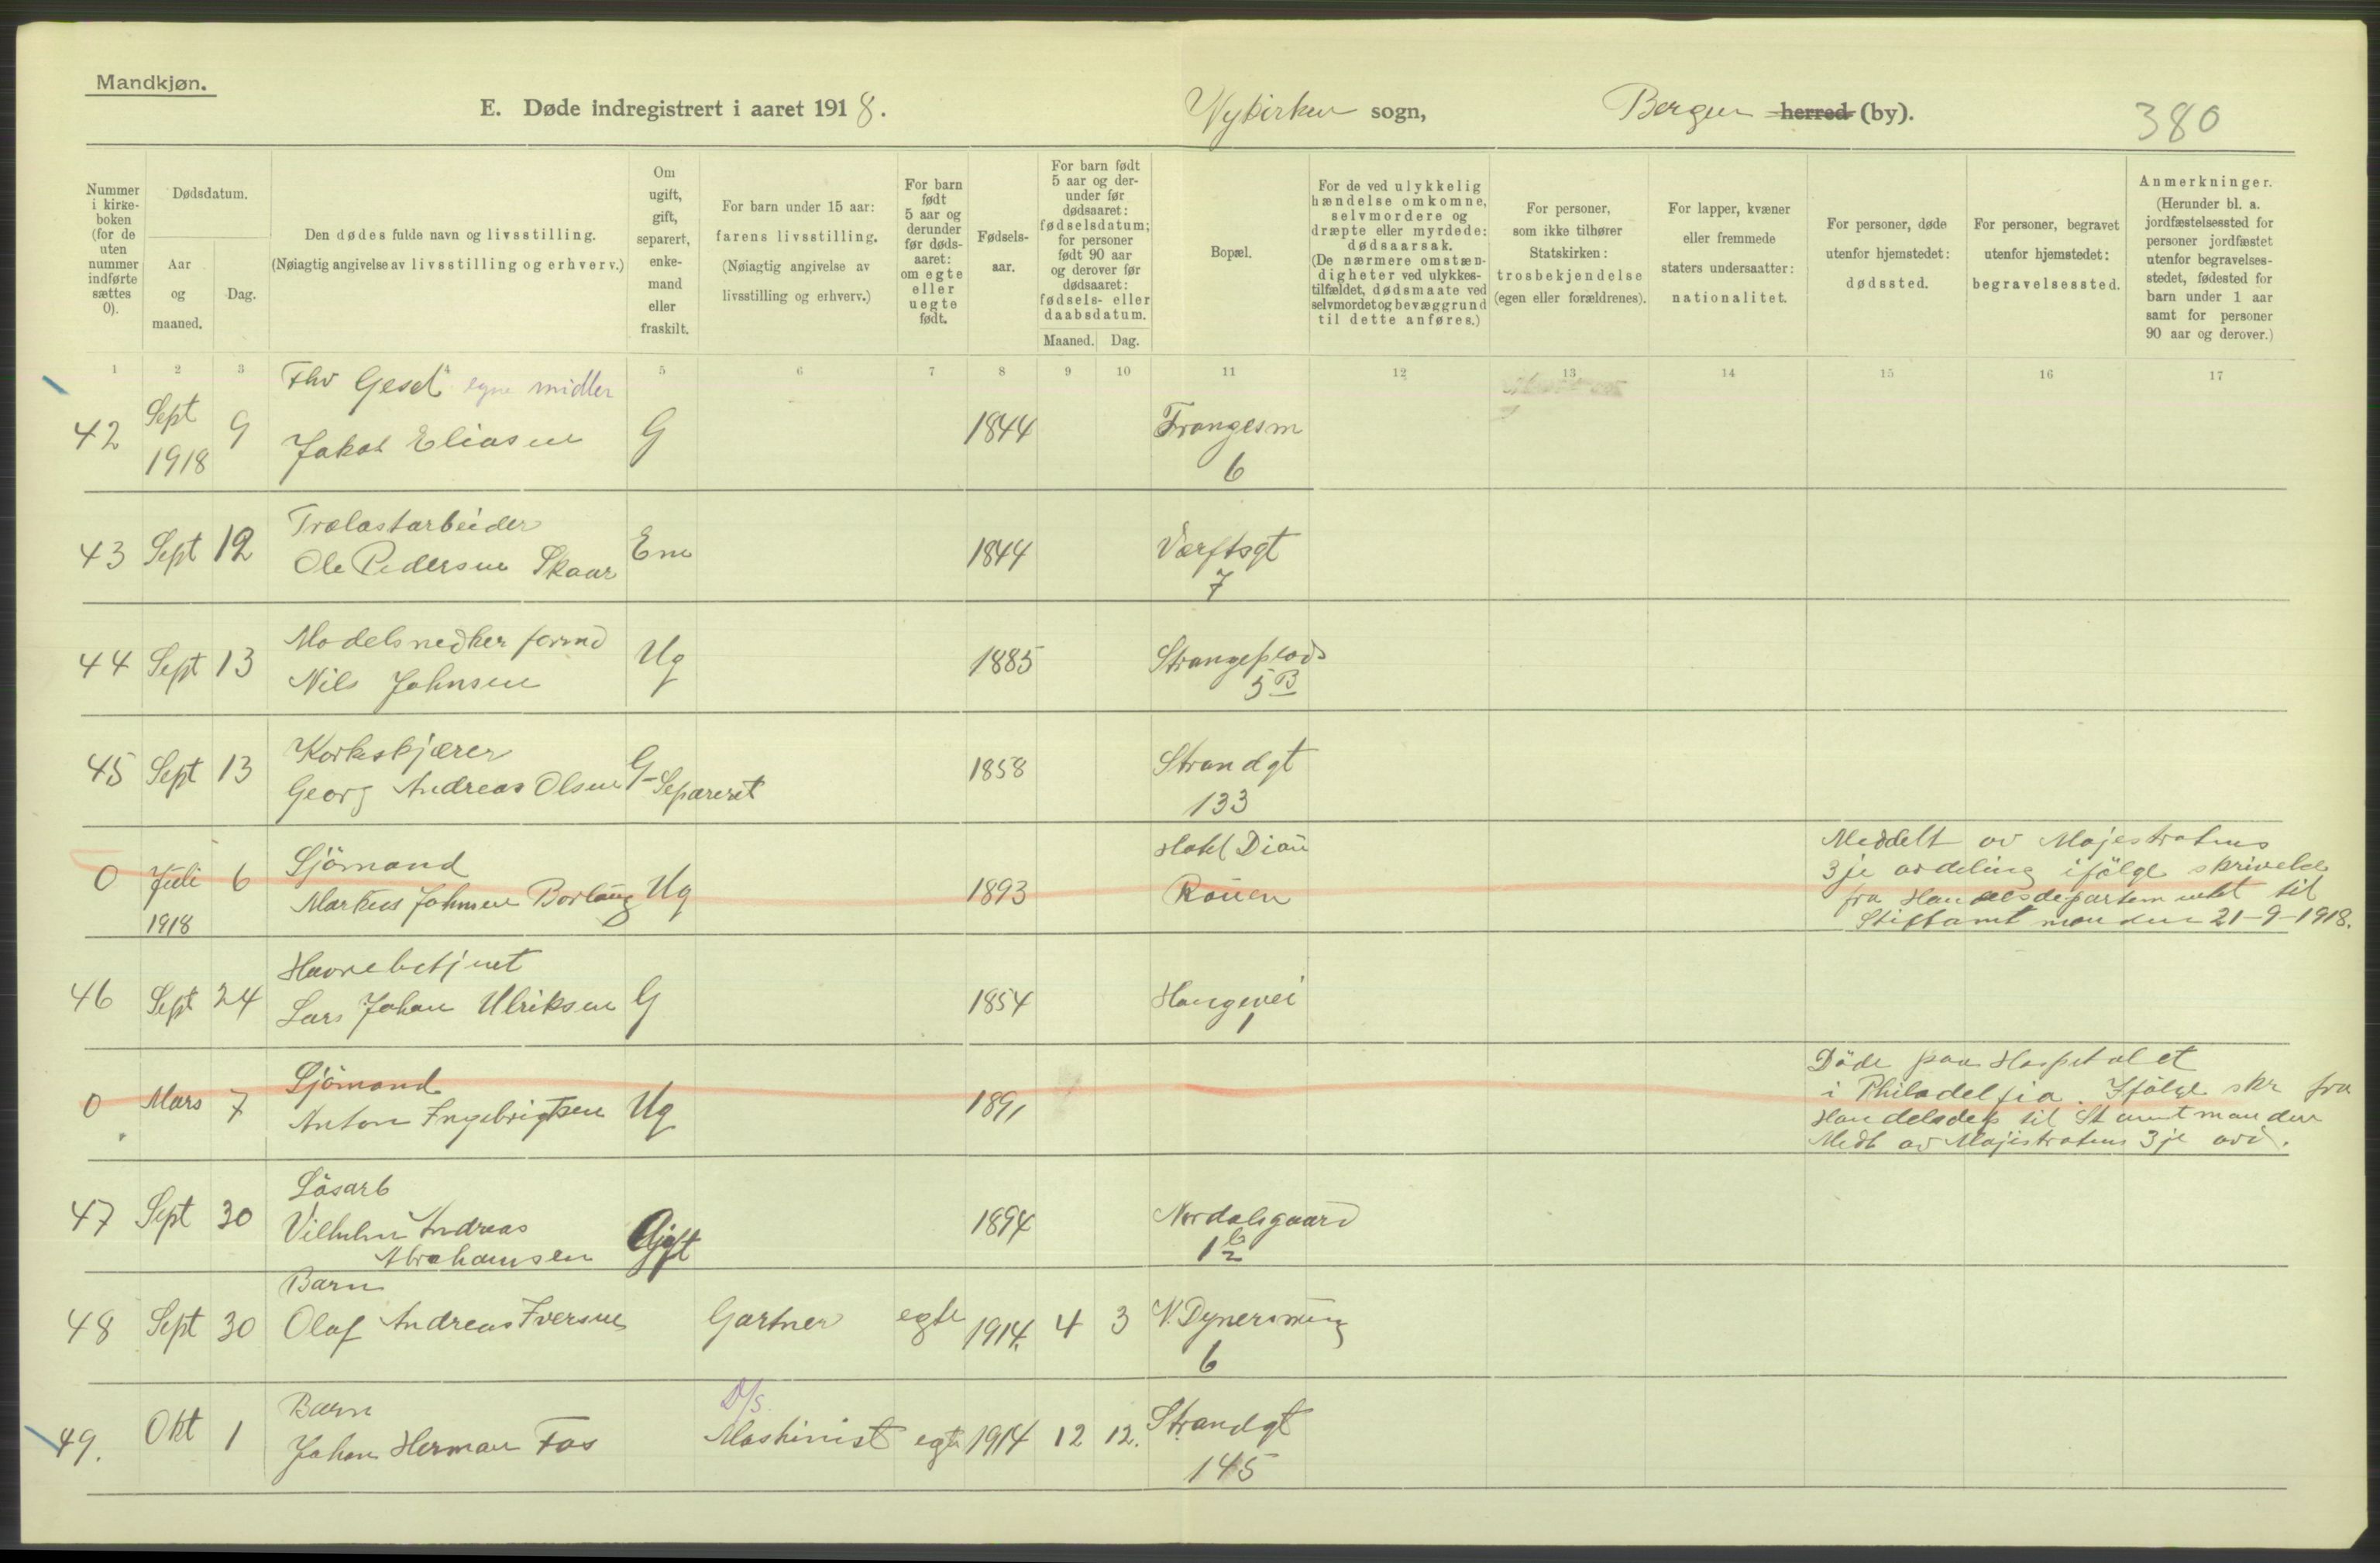 Mandkjøn.
E. Døde indregistrert i aaret 1918. Nykirken sogn, Bergen herred (by). 380
Nummer i kirkeboken (for de uten nummer indførte sættes 0).
Dødsdatum.
Aar og maaned.
Dag.
Den dødes fulde navn og livsstilling.
(Nøiagtig angivelse av livsstilling og erhverv.)
Om ugift, gift, separert, enkemand eller fraskilt.
For barn under 15 aar:
farens livsstilling.
(Nøiagtig angivelse av livsstilling og erhverv.)
For barn født 5 aar og derunder før dødsaaret: om egte eller uegte født.
Fødselsaar.
For barn født 5 aar og derunder før dødsaaret: fødselsdatum; for personer født 90 aar og derover før dødsaaret: fødsels- eller daabsdatum.
Maaned. Dag.
Bopæl.
For de ved ulykkelig hændelse omkomne, selvmordere og dræpte eller myrdede: dødsaarsak.
(De nærmere omstændigheter ved ulykkestilfældet, dødsmaate ved selvmordet og bevæggrund til dette anføres.)
For personer, som ikke tilhører Statskirken: trosbekjendelse (egen eller forældrenes).
For lapper, kvæner eller fremmede staters undersaatter: nationalitet.
For personer, døde utenfor hjemstedet: dødssted.
For personer, begravet utenfor hjemstedet: begravelsessted.
Anmerkninger.
(Herunder bl. a. jordfæstelsessted for personer jordfæstet utenfor begravelsesstedet, fødested for barn under 1 aar samt for personer 90 aar og derover.)
1 2 3 4 5 6 7 8 9 10 11 12 13 14 15 16 17
Fhv Gesel egne midler
42 Sept 1918 9 Jakob Eliasen G 1844 Frangesm 6
Trælastarbeider
43 Sept 12 Ole Pedersen Skaar Em 1844 Værftsgt 7
Modelsnedker formd
44 Sept 13 Nils Johnsen Ug 1885 Strangeplads 5 B
Korkskjærer
45 Sept 13 Georg Andreas Olsen G-Separeret 1858 Strandgt 133
Sjömand
0 Juli 1918 6 Markus Johnsen Ug 1893 Rouen
Meddelt av Majestratens
3je avdeling ifölge skrivelse
fra Handelsdepartementet til
Stiftamtmanden 21-9-1918.
Havnebetjent
46 Sept 24 Lars Johan Ulriksen G 1854 Haugevei 1
Sjömand
0 Mars 7 Anton Ingebrigtsen Ug 1891
Döde paa Hospitalet
i Philadelfia. Ifölge skr fra
Handelsdep til St amtmanden
Medt av Majistratens 3je avd.
Lösarb
47 Sept 30 Vilhelm Andreas Abrahamsen Gift 1894 Nordalsgaard 1 b/2
Barn
48 Sept 30 Olaf Andreas Iversen Gartner egte 1914. 4 3 6
Barn D/s.
49. Okt 1 Johan Herman Fos Maskinist egte 1914 12 12. Strandgt 145